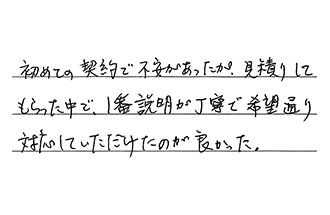 初めての契約で不安があったが、見積りして
もらった中で、1番説明が丁寧で希望通り
対応していただけたのが良かった。